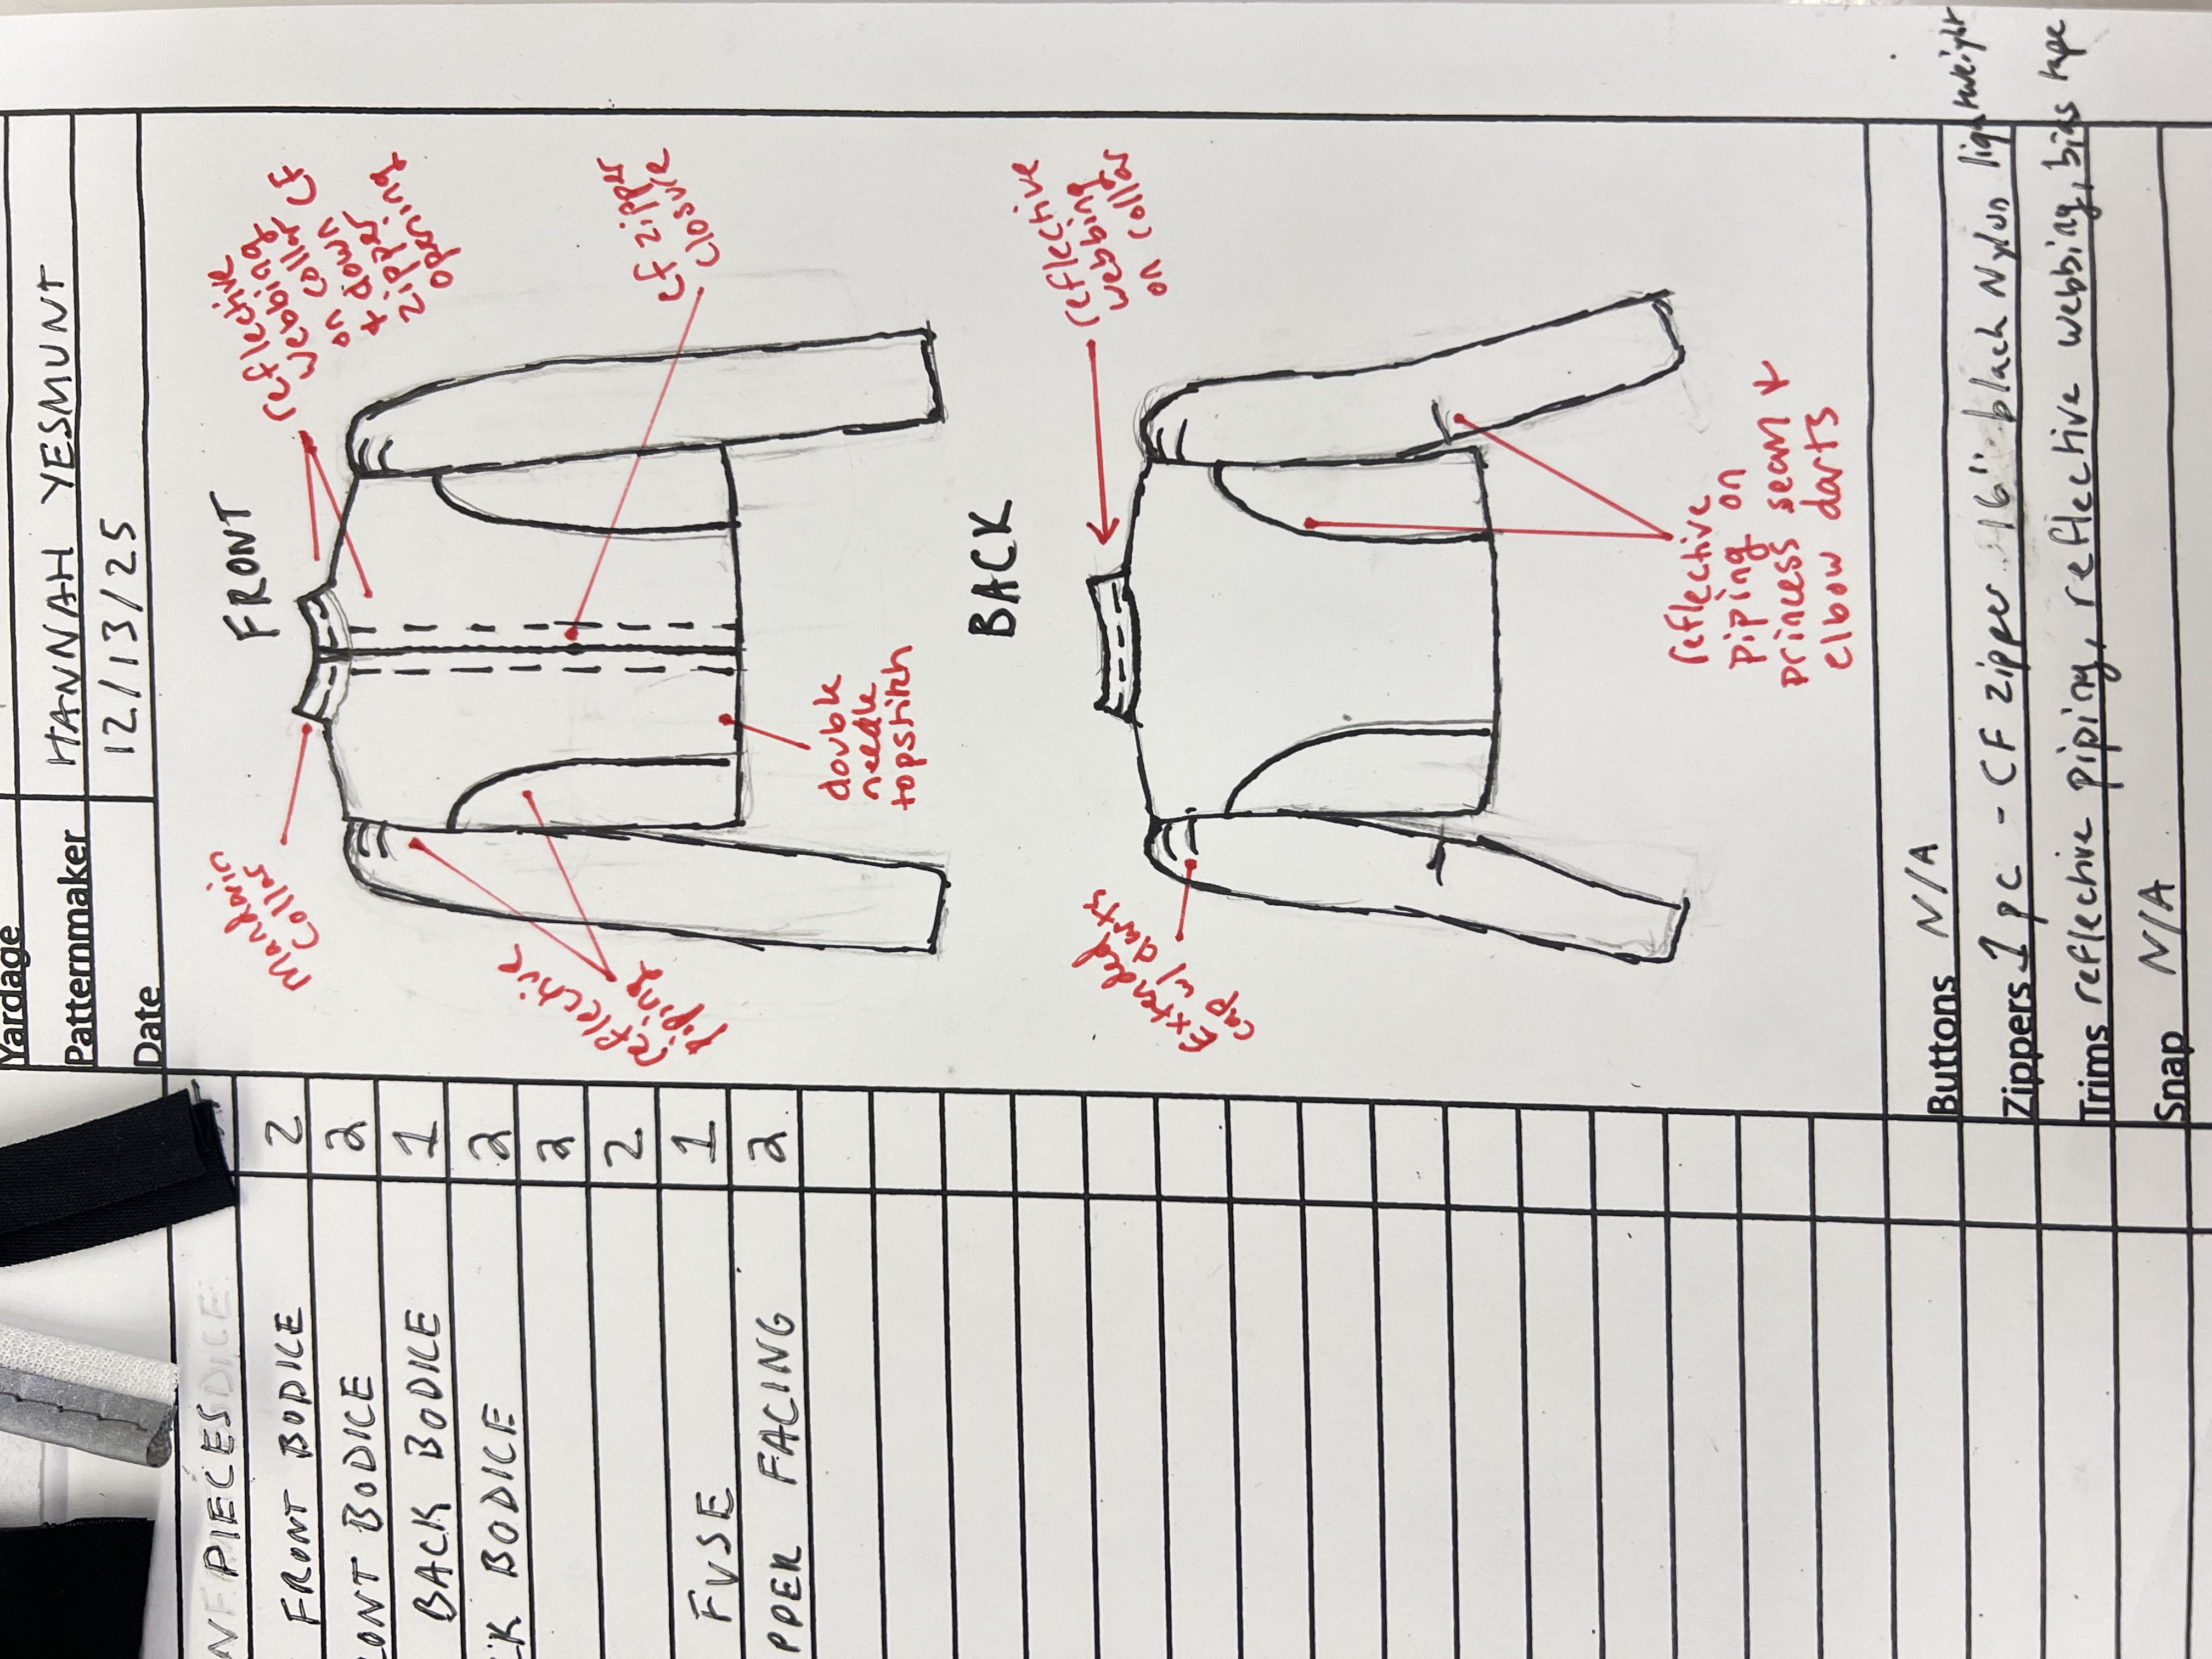 Yardage
Patternmaker HANNAH YESMUNT
Date 12/13/25
PIECES
FRONT BODICE 2
FRONT BODICE 2
BACK BODICE 1
BODICE 2
2
2
FUSE 1
PPER FACING 2
FRONT
mandarin
collar
reflective
webbing
on collar CF
+ down
zipper
opening
CF zipper
closure
reflective
piping
double
needle
topstitch
BACK
reflective
webbing
on collar
Extended
cap w/ darts
reflective
piping on
princess seam +
elbow darts
Buttons N/A
Zippers 1 pc - CF zipper 16" black Nylon lightweight
Trims reflective piping, reflective webbing, bias tape
Snap N/A